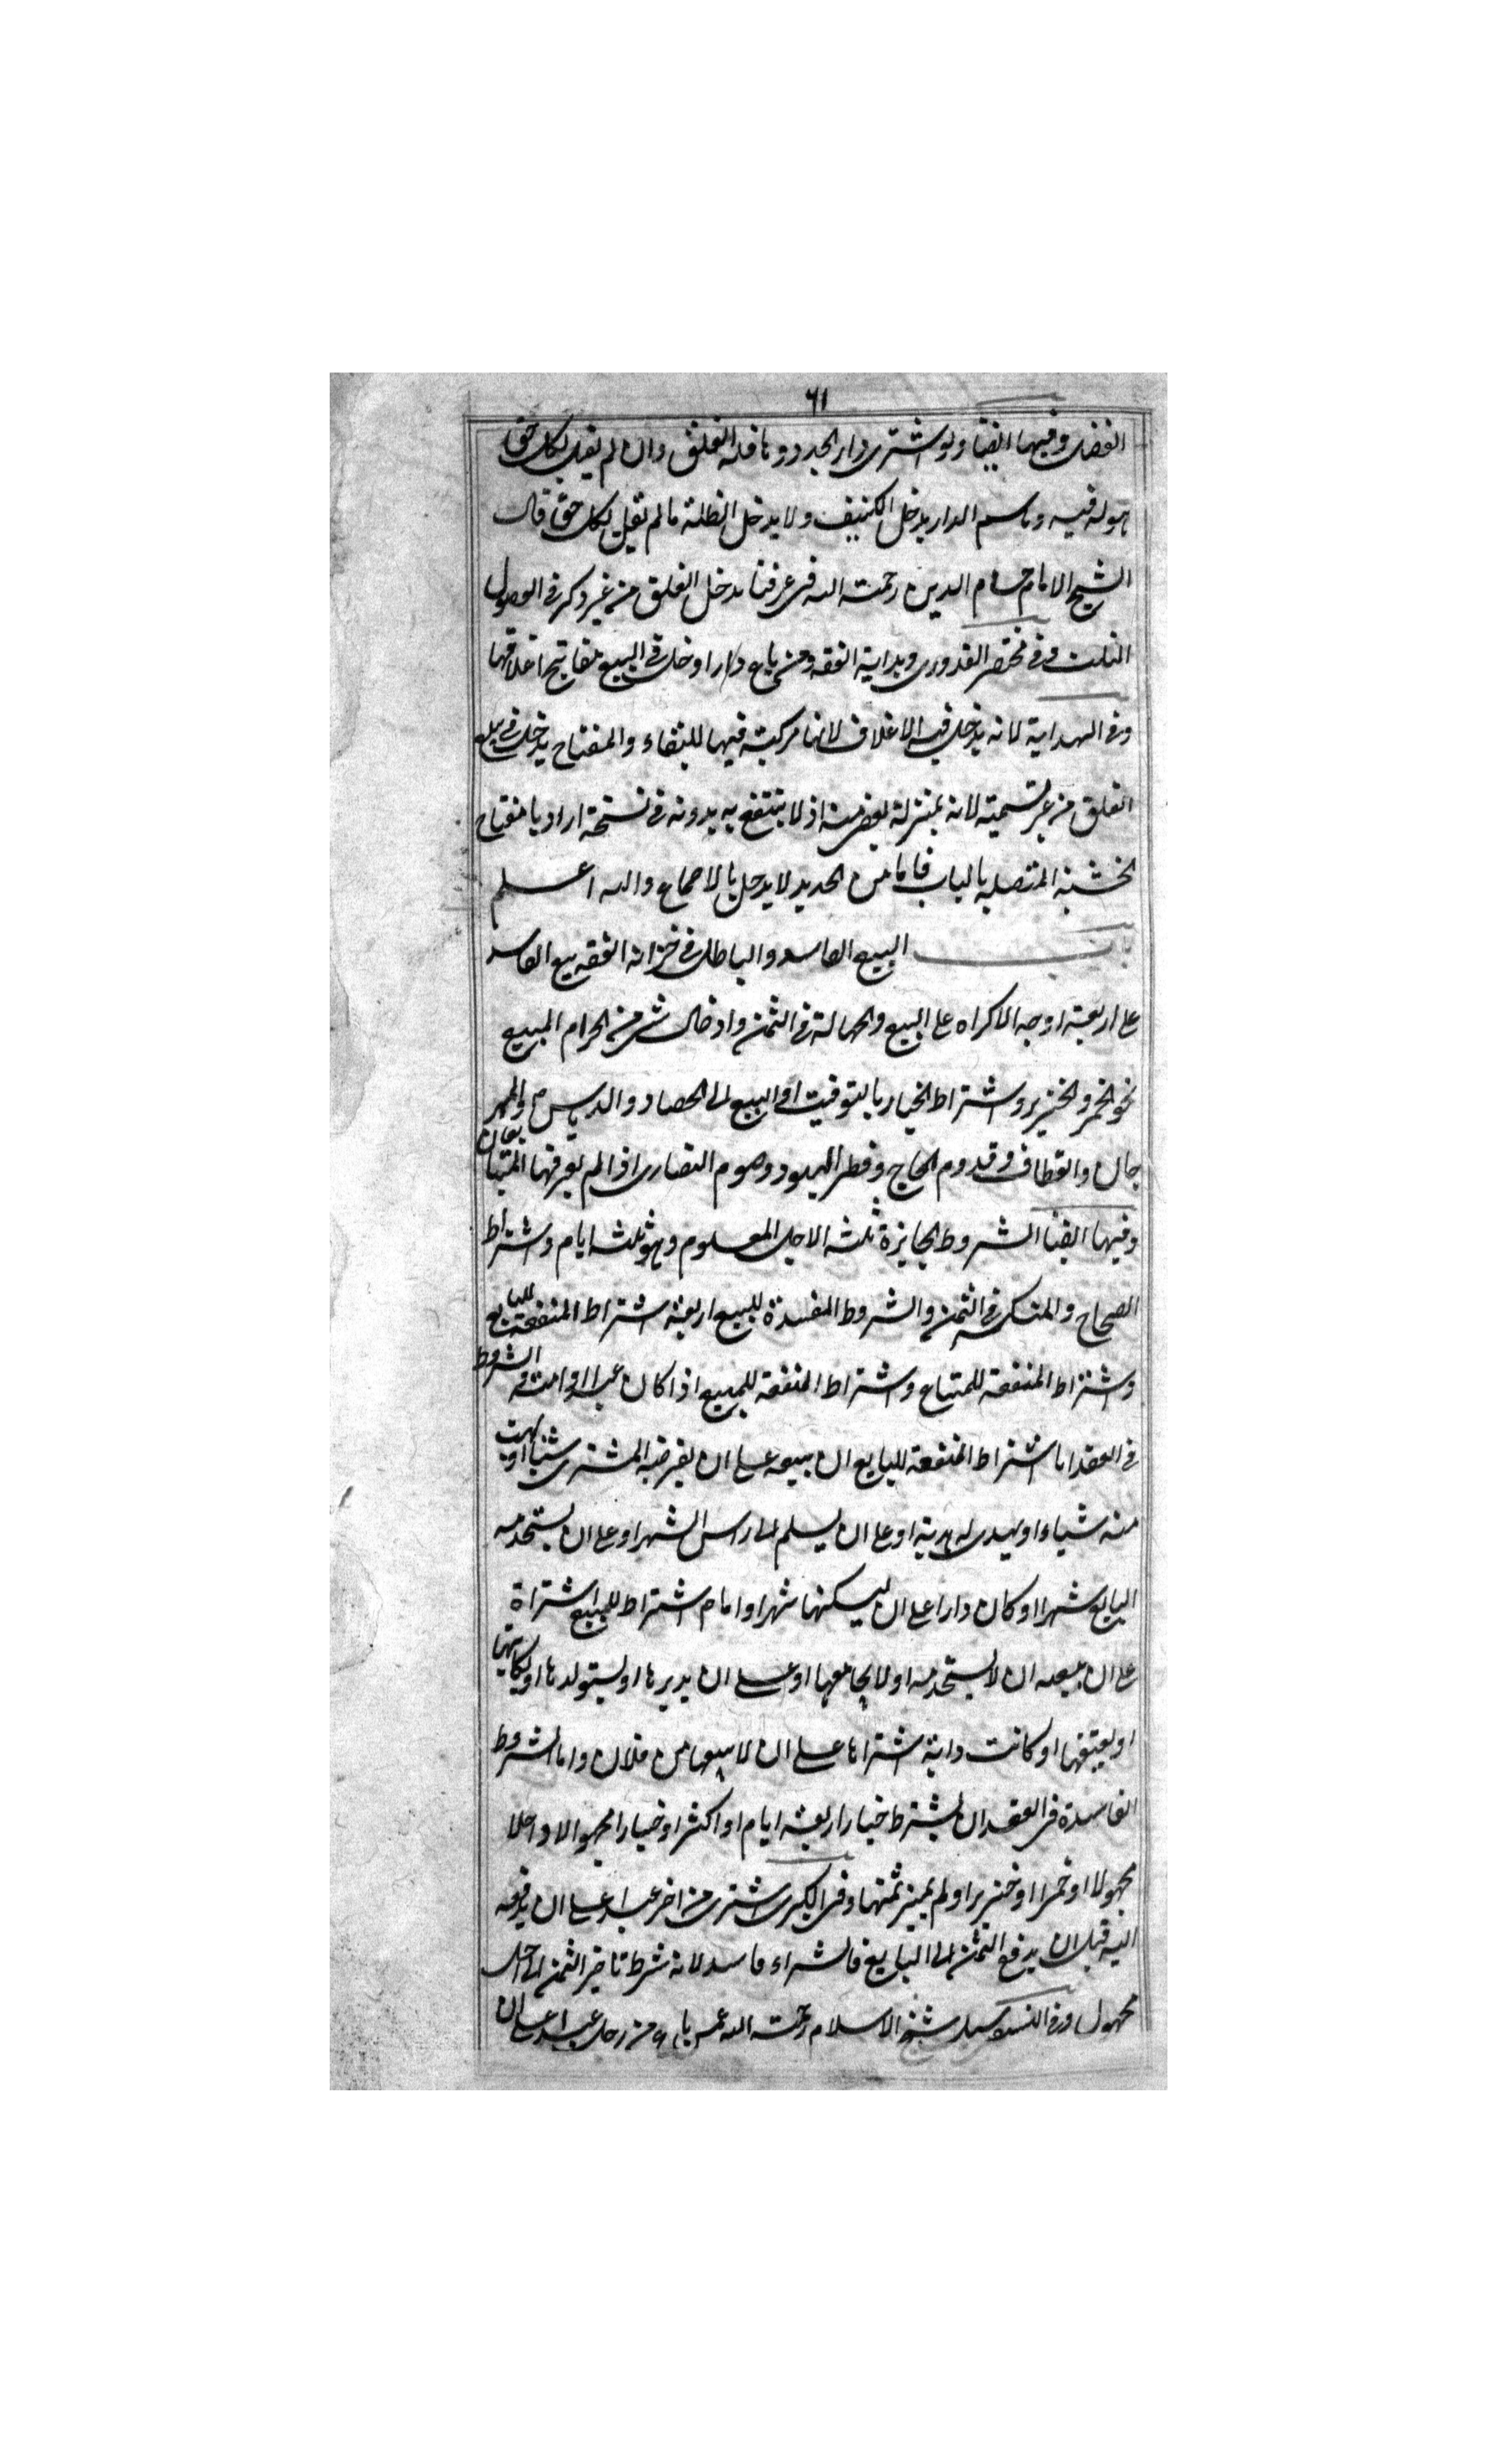 ٦١
الفضل وفيها ايضا ولو اشترى دار الحدود فله الغلق وان لم يقل بكل حق
هو له فيه وباسم الدار يدخل الكنيف ولا يدخل الظلة ما لم يقل بكل حق قال
الشيخ الامام حسام الدين رحمته الله فى عرفنا يدخل الغلق من غير ذكر فى الفصول
الثلث وفى مختصر القدورى وبداية الفقه ومن باع دارا دخل فى البيع مفاتيح اغلاقها
وفى الهداية لانه يدخل فيه الاغلاق لانها مركبة فيها للبقاء والمفتاح يدخل فى بيع
الغلق من غير تسمية لانه بمنزلة بعض منه اذ لا ينتفع به بدونه فى نسخة اراد بامفتاح
الخشبة المتصلة بالباب فاما من الحديد لا يدخل بالاجماع والله اعلم
باب البيع الفاسد والباطل فى خزانة الفقه بيع الفاسد
على اربعة اوجه الاكراه على البيع والجهالة فى الثمن وادخال شى من الحرام المبيع
نحو الخمر والخنزير واشتراط الخيار بالتوقيت او البيع الى الحصاد والدياس والمهر
جان والقطاف وقدوم الحاج وفطر اليهود وصوم النصارى اذا لم يعرفها المتبايعان
وفيها ايضا الشروط الجايزة ثلثة الاجل المعلوم وهو ثلثة ايام واشتراط
الصحاح والمنكسرة فى الثمن والشروط المفسدة للبيع اربعة اشتراط المنفعة للبايع
واشتراط المنفعة للمتباع واشتراط المنفعة للمبيع اذا كان عبدا او امة والشروط
فى العقد اما اشتراط المنفعة للبايع ان يبيعه على ان يقرضه المشترى شيئا او يهب
منه شياء او يهدى له هدية او على ان يسلم الى راس الشهر او على ان يستخدمه
البايع شهرا او كان دارا على ان ليسكنها شهرا واما اشتراط للمبيع اشتراة
على ان يبيعه ان لا يستخدمه او لا يجامعها او على ان يدبرها او يستولدها او يكاتبها
او يعتقها او كانت دابة اشتراها على ان لا يبيعها من فلان واما الشروط
الفاسدة فى العقد ان يشترط خيار اربعة ايام او اكثر او خيارا مجهولا او اجلا
مجهولا او خمرا او خنزيرا ولم يميز ثمنهما وفى الكبرى اشترى من اخر عبدا على ان يدفعه
اليه قبل ان يدفع الثمن الى البايع فالشراء فاسد لانه شرط تاخير الثمن الى اجل
مجهول وفى سيل شيخ الاسلام رحمته الله عمن باع من رجل عبدا على ان